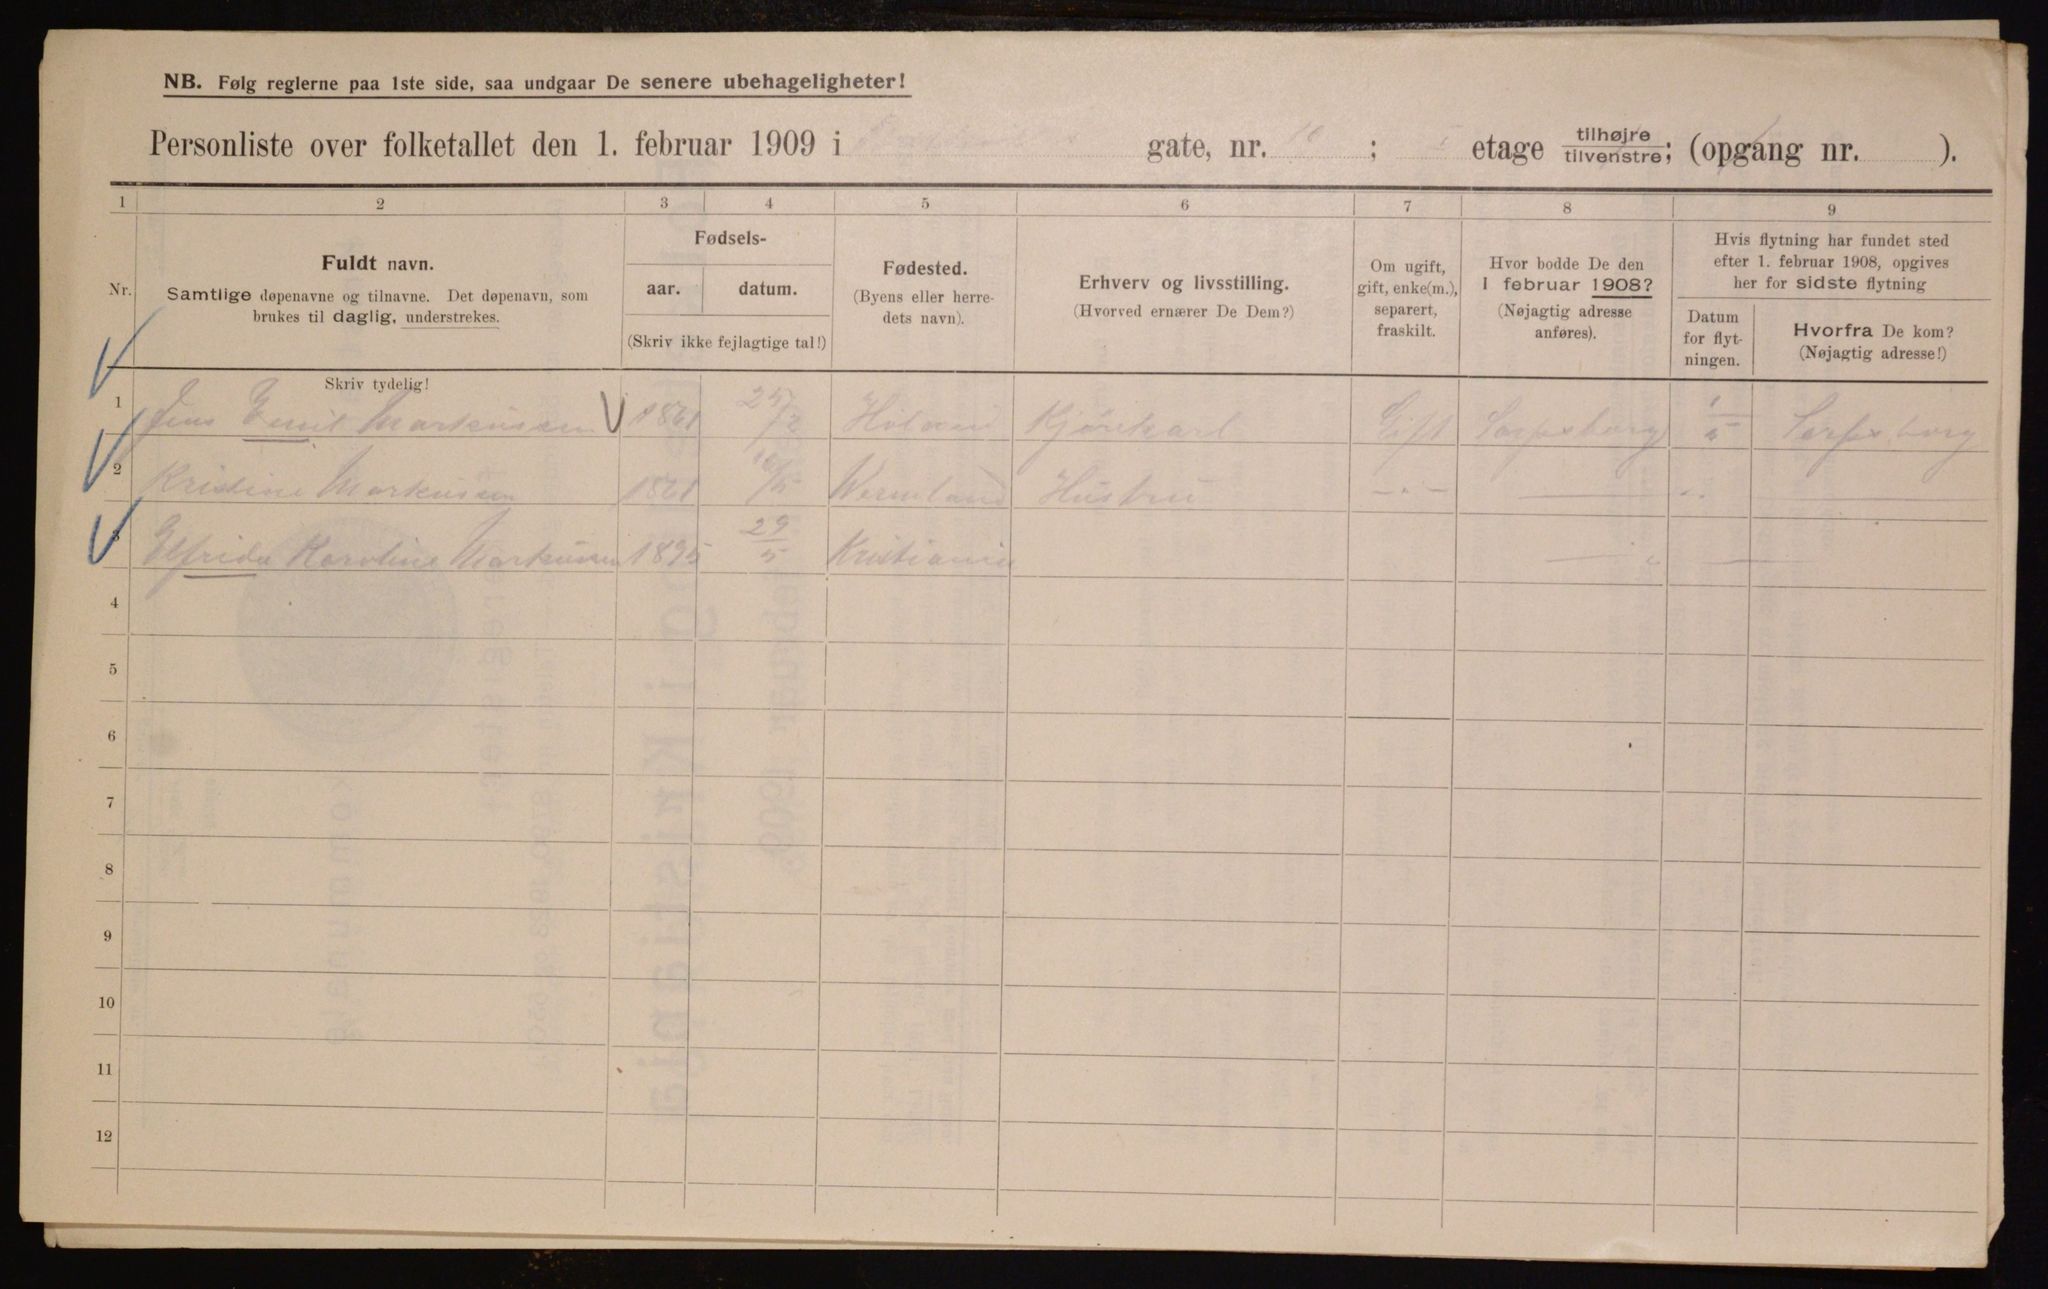 NB. Følg reglerne paa 1ste side, saa undgaar De senere ubehageligheter!
Personliste over folketallet den 1. februar 1909 i gate, nr. 10 ; etage tilhøjre tilvenstre; (opgang nr. ).
1 2 3 4 5 6 7 8 9
Nr.
Fuldt navn.
Samtlige døpenavne og tilnavne. Det døpenavn, som
brukes til daglig, understrekes.
Skriv tydelig!
Fødsels-
aar. datum.
(Skriv ikke fejlagtige tal!)
Fødested.
(Byens eller herre-
dets navn).
Erhverv og livsstilling.
(Hvorved ernærer De Dem?)
Om ugift,
gift, enke(m.),
separert,
fraskilt.
Hvor bodde De den
1 februar 1908?
(Nøjagtig adresse
anføres).
Hvis flytning har fundet sted
efter 1. februar 1908, opgives
her for sidste flytning
Datum
for flyt-
ningen.
Hvorfra De kom?
(Nøjagtig adresse!)
1 Jens Emil Markussen 1861 Høland Kjørekarl Gift Sarpsborg 1/5 Sarpsborg
2 Kristine Markussen 1861 Wermland Hustru
3 Elfrida Karoline Markussen 1895 29/5 Kristiania
4
5
6
7
8
9
10
11
12